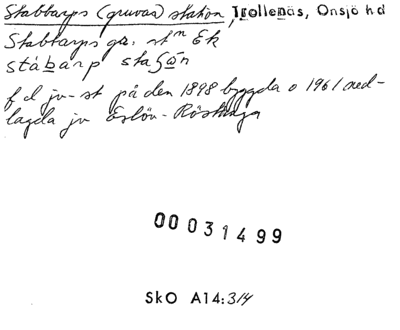 Stabbarps (gruvas) station, Trollenäs, Onsjö hd
Stabbarps gr. stn Ek
stábarp staʃón
f d jv-st på den 1898 byggda o 1961 ned-
lagda jv Eslöv-Röstånga
00031499
SkO A14:3/4